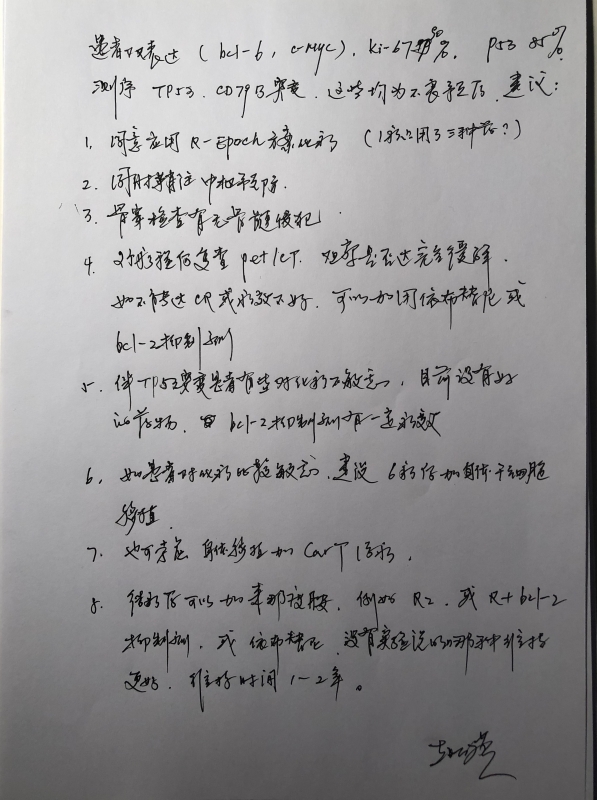 患者双表达 (bcl-6, c-myc), Ki-67 90%, P53 85%
测序 TP53、CD79B突变,这些均为不良预后,建议:
1. 同意应用 R-Epoch方案化疗 (1疗只用了三种药?)
2. 同时持续注中枢预防.
3. 骨穿检查有无骨髓侵犯.
4. 2个疗程后复查 pet/CT. 观察是否达完全缓解.
如不有达CR或疗效不好,可以加用依布替尼或
bcl-2抑制剂
5. 伴TP53突变患者有些对化疗不敏感,目前没有好
的药物,但 bcl-2抑制剂有一定疗效
6. 如患者对化疗比较敏感,建议 6疗后加自体干细胞
移植.
7. 也可考虑 自体移植加 CarT治疗.
8. 结疗后可以加来那度胺,例如 R2,或 R+bcl-2
抑制剂,或 依布替尼,没有实验说明哪种维持
更好,维持时间 1-2年。